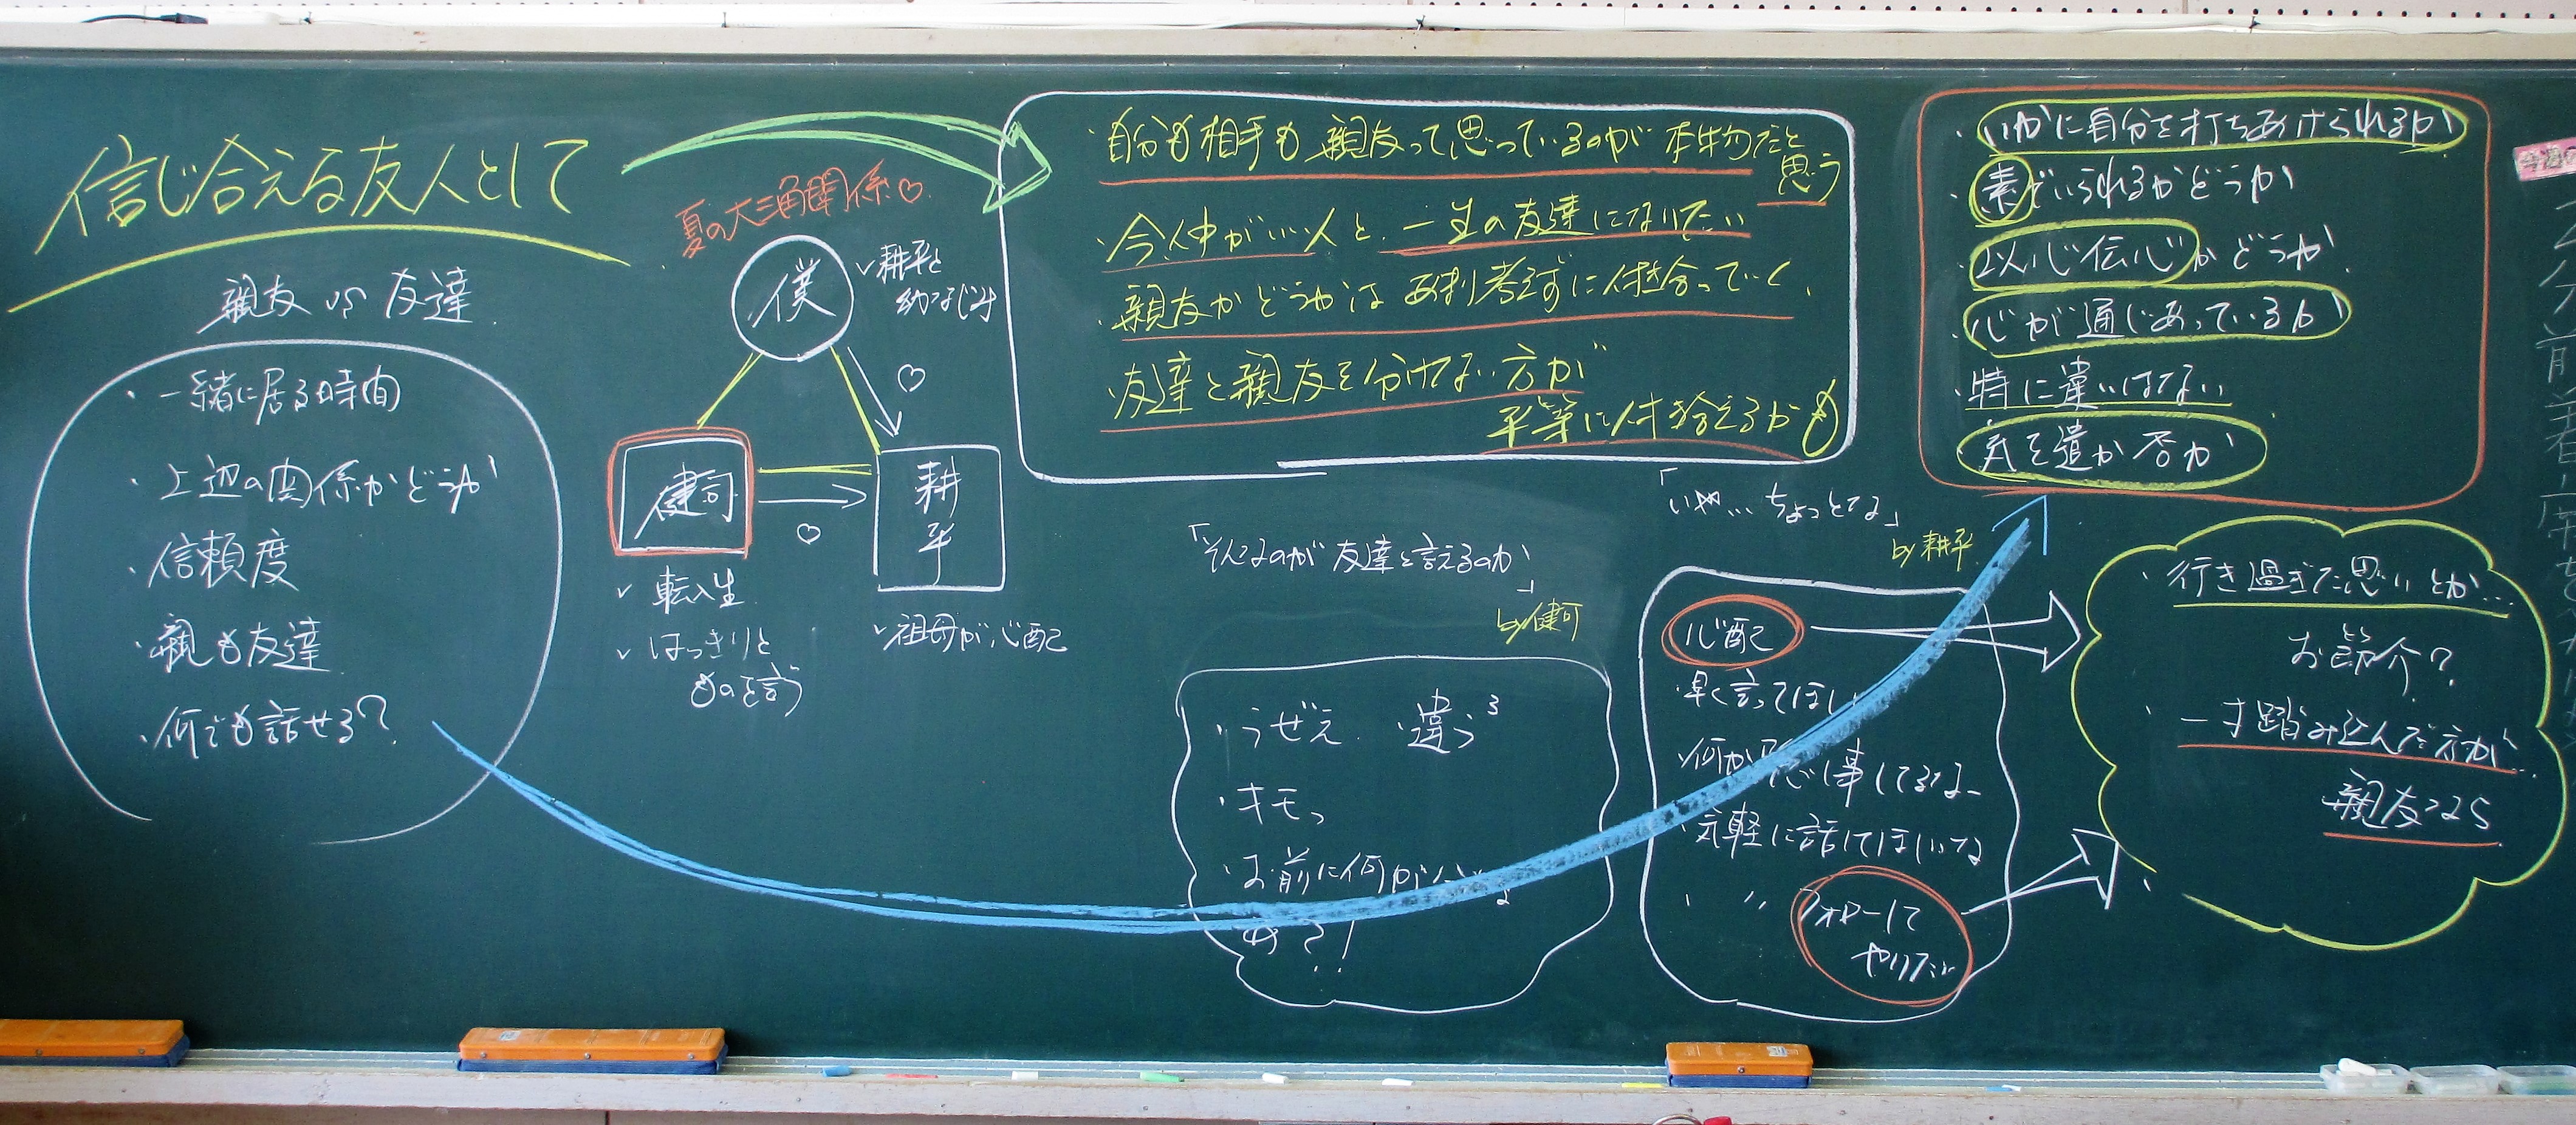 信じ合える友人として
親友 vs 友達
・一緒に居る時間
・上辺の関係かどうか
・信頼度
・親も友達
・何でも話せる?
夏の大三角関係♡
僕
✓耕平と
幼なじみ
♡
健司
♡
耕平
✓転入生
✓はっきりと
ものを言う
✓祖母が心配
・自分も相手も親友って思っているのが本物だと
思う
・今仲がいい人と、一生の友達になりたい
・親友かどうかはあまり考えずに付き合っていく。
・友達と親友を分けない方が
平等に付き合えるかも
「そんなのが友達と言えるのか」
by健司
「いや…ちょっとな」
by耕平
・うぜえ ・違う3
・キモっ
・お前に何が
心配
・早く言ってほしい
・何か隠し事してるなー
・気軽に話してほしいな
・〃 フォローして
やりたい
・いかに自分を打ちあけられるか
・素でいられるかどうか
・以心伝心かどうか
・心が通じあっているか
・特に違いはない
・気を遣か否か
・行き過ぎた思いとか…
お節介?
・一寸踏み込んだ方が…
親友っぽい